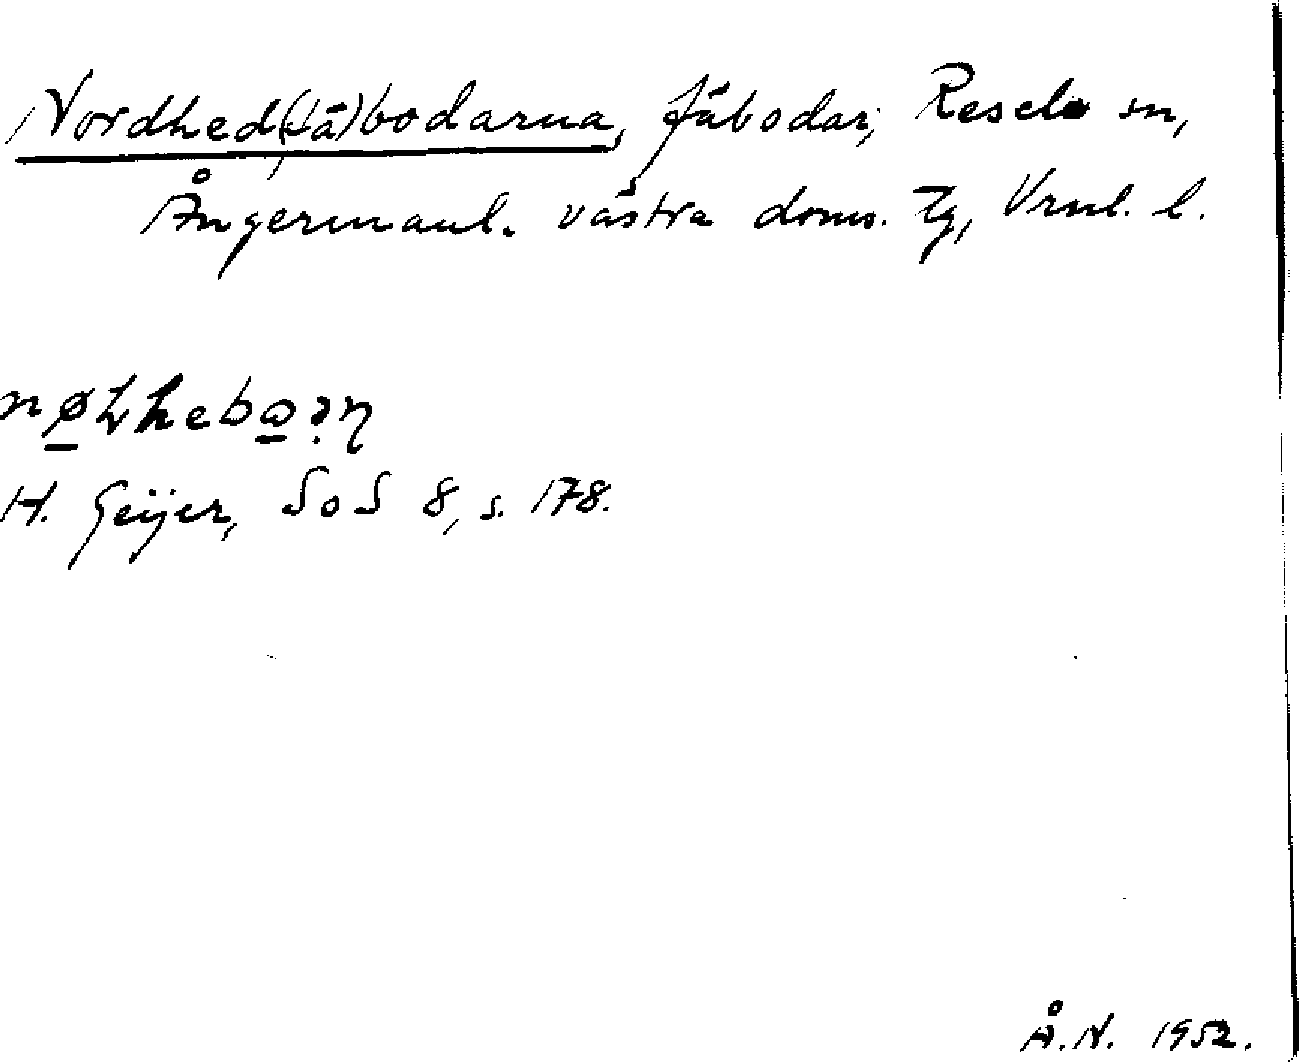 Nordhed(fä)bodarna, fäbodar, Resele sn,
Ångermanl. västra doms. tg, Vrnl. l.
H. Geijer, SoS 8, s. 178.
Å.N. 1952.